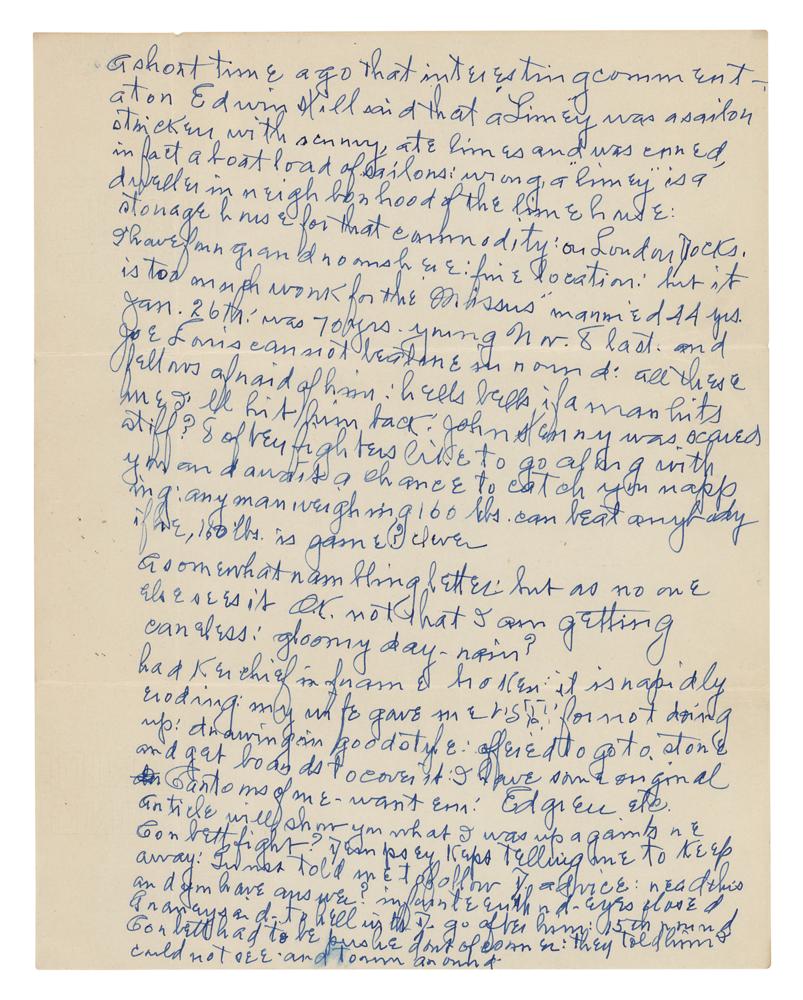 A short time ago that interesting comment-
ator Edwin Hill said that a "Limey" was a sailor
stricken with scurvy, ate limes and was cured,
in fact a boat load of sailors: wrong, a "limey" is a
dweller in neighborhood of the lime house:
storage house for that commodity: on London Docks.
I have four grand rooms here: fine location: but it
is too much work for the "Missus" married 44 yrs.
Jan. 26th: was 70 yrs. young Nov. 8 last. and
Joe Louis cannot beat me in round: all these
fellows afraid of him: hells bells, if a man hits
me I'll hit him back: John Henny was scared
stiff? 8 of ten fighters like to go along with
you and await a chance to catch you napp
ing: any man weighing 160 lbs. can beat anybody
if he, 160 lbs. is game & clever
A somewhat rambling letter: but as no one
else sees it O.K. not that I am getting
careless: gloomy day - rain?
had Kerchief in frame broken: it is rapidly
eroding: my wife gave me for not doing
up: drawing in good style: offered to go to store
and get boards to cover it: I have some original
Cartoons of me - want em: Edgren etc.
article will show you what I was up against re
Corbett fight? Dempsey Kept telling me to Keep
away: Guist told me to follow D. advice: read this
and you have answer? in nineteenth rd - eyes closed
Graney said - to hell with D - go after him: 15th round
Corbett had to be pushed out of corner: they told him I
could not see - and to run around